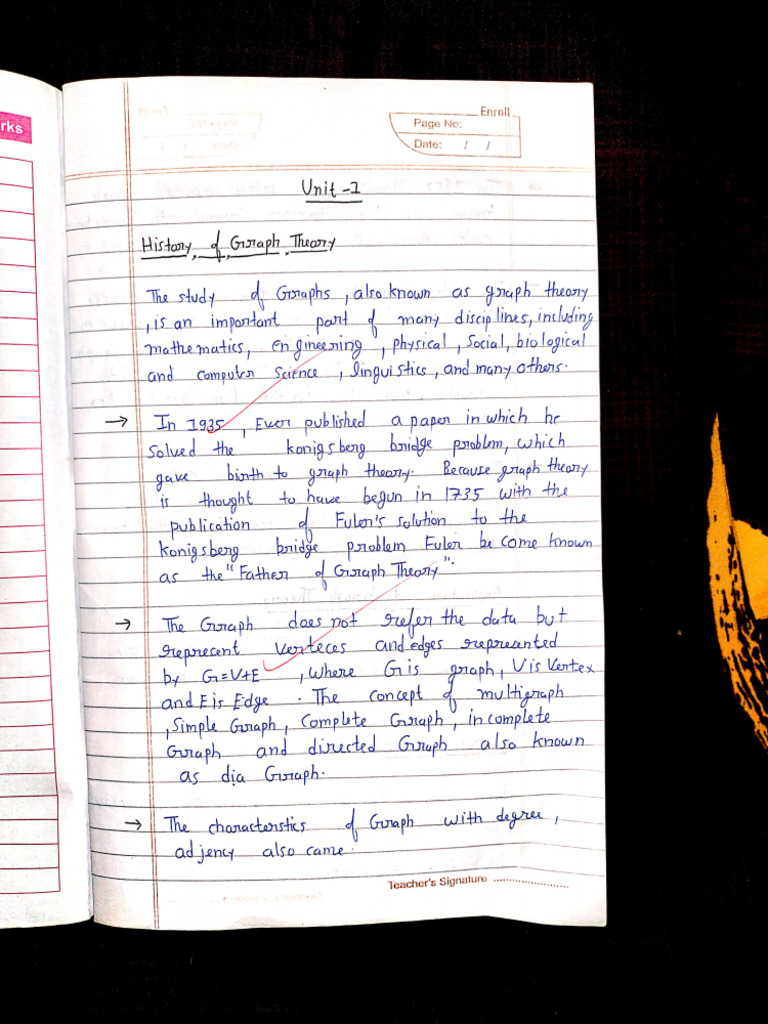 rks
Enroll
Page No:
Date: / /
Unit -1
History of Graph Theory
The study of Graphs , also known as graph theory
, is an important part of many disciplines, including
mathematics, engineering , physical , Social, biological
and computer Science , linguistics , and many others.
→ In 1935 , Euer published a paper in which he
solved the konigsberg bridge problem, which
gave birth to graph theory. Because graph theory
is thought to have begun in 1735 with the
publication of Fuler's solution to the
konigsberg bridge problem Euler be come known
as the "Father of Graph Theory".
→ The Graph does not refer the data but
represent verteces and edges represented
by G=V+E , where G is graph, V is Vertex
and E is Edge . The concept of multigraph
, Simple Graph , Complete Graph , in complete
Graph and directed Graph also known
as dia Graph.
→ The characterstics of Graph with degree ,
adjency also came.
Teacher's Signature ........................